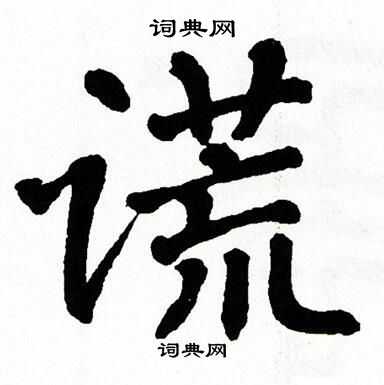 词典网
谎
词典网